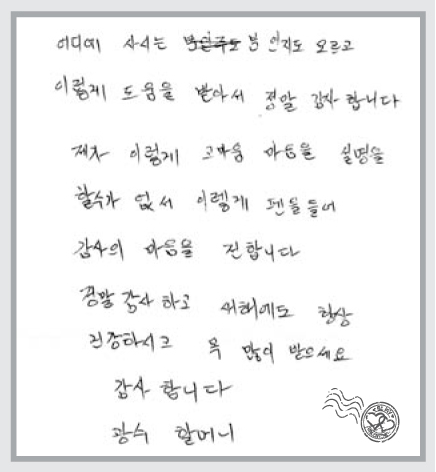 어디에 사시는 분 인지도 모르고
이렇게 도움을 받아서 정말 감사 합니다
제가 이렇게 고마움 마음을 설명을
할수가 없서 이렇게 펜을 들어
감사의 마음을 전합니다
정말 감사 하고 새해에도 항상
건강하시고 복 많이 받으세요
감사 합니다
광수 할머니